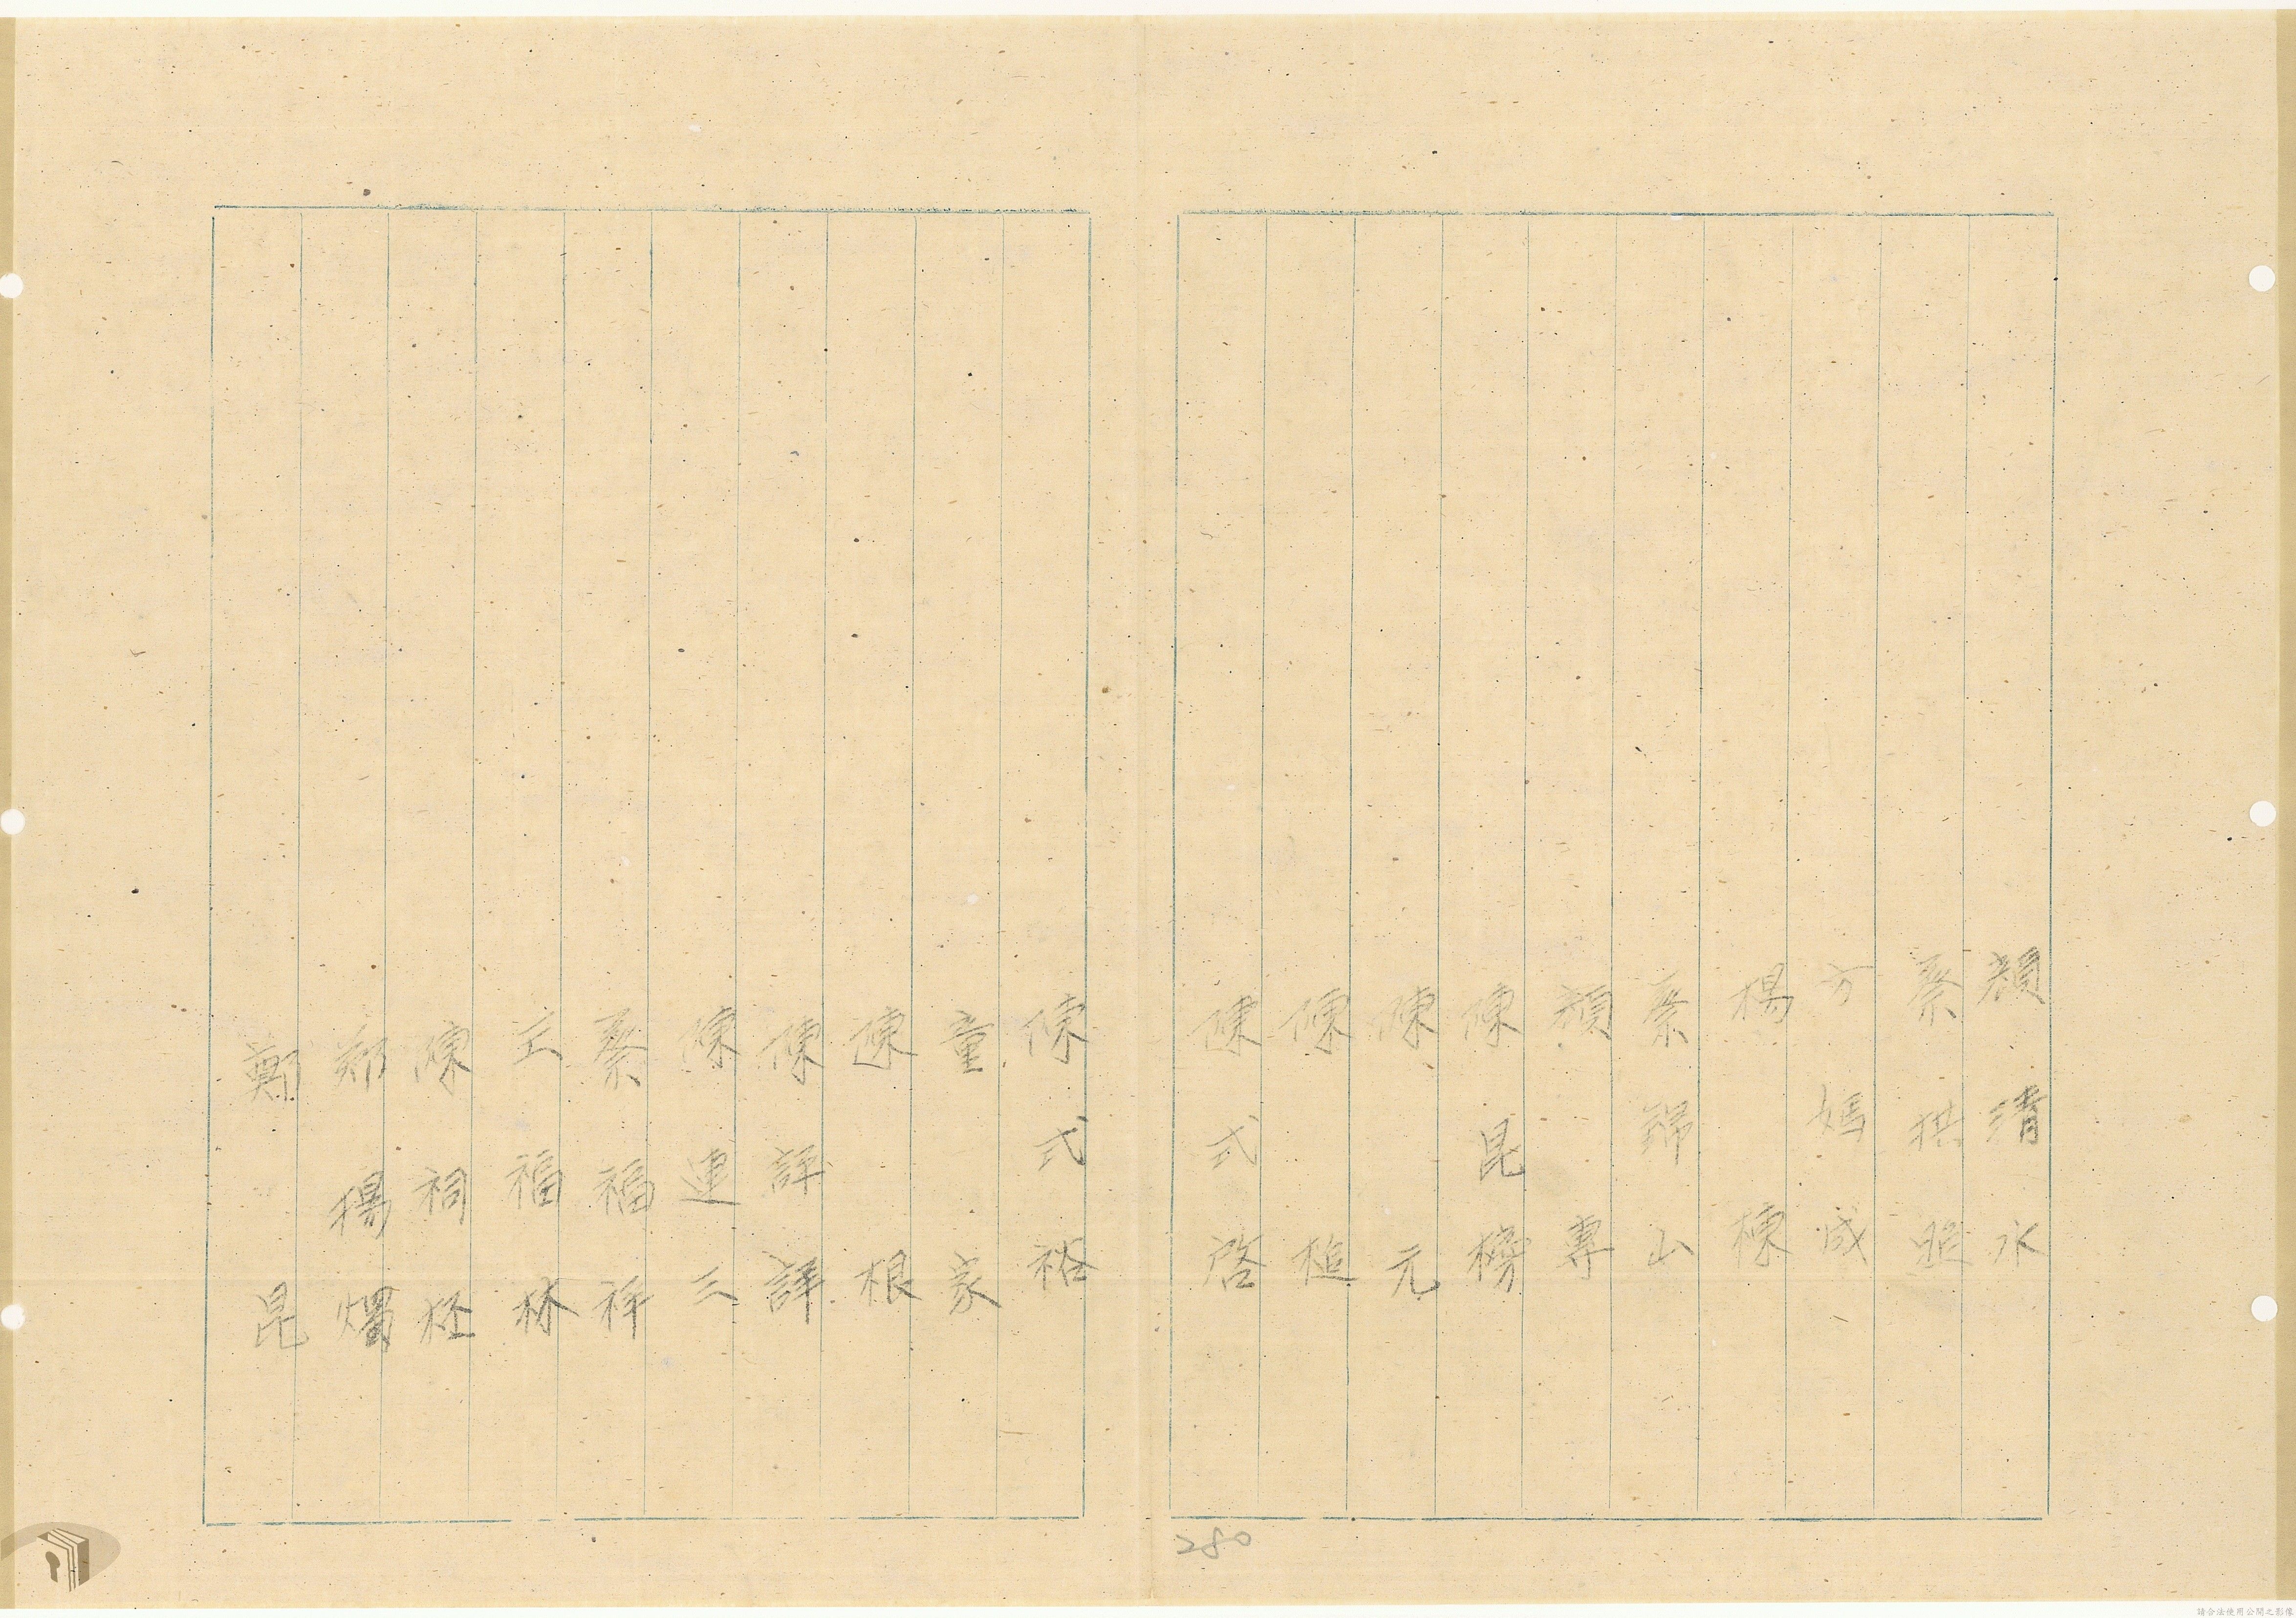 顏清水
蔡拱照
方媽成
楊棟
蔡歸山
顏專
陳昆榜
陳元
陳槌
陳式啓
陳式裕
童家
陳根
陳評詳
陳連三
蔡福祥
王福林
陳祠
鄭楊燭
鄭昆
280
請合法使用公開之影像